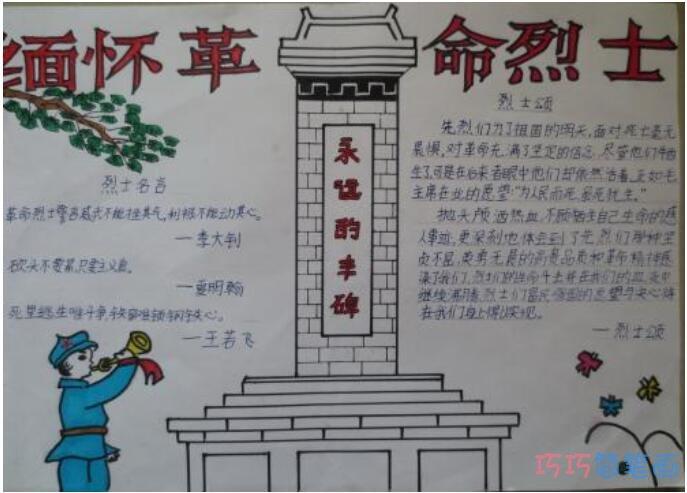 缅怀革命烈士
烈士名言
革命烈士警容威武不能挫其气,利禄不能动其心。
—李大钊
砍头不要紧,只要主义真。
—夏明翰
死里逃生唯斗争,铁窗难锁钢铁心。
—王若飞
永远的丰碑
烈士颂
先烈们为了祖国的明天,面对死亡毫无
畏惧,对革命充满了坚定的信念,尽管他们牺
牲了,可是在后来者眼中他们却依然活着,正如毛
主席在世的愿望:"为人民而死,虽死犹生。"
抛头颅洒热血,不顾牺牲自己生命的感
人事迹,更深刻地体会到了先烈们那种坚
贞不屈,英勇无畏的高贵品质和革命精神感
染了我们,烈士们的生命
继续
在我们身上得以实现。
—烈士颂
巧巧简笔画